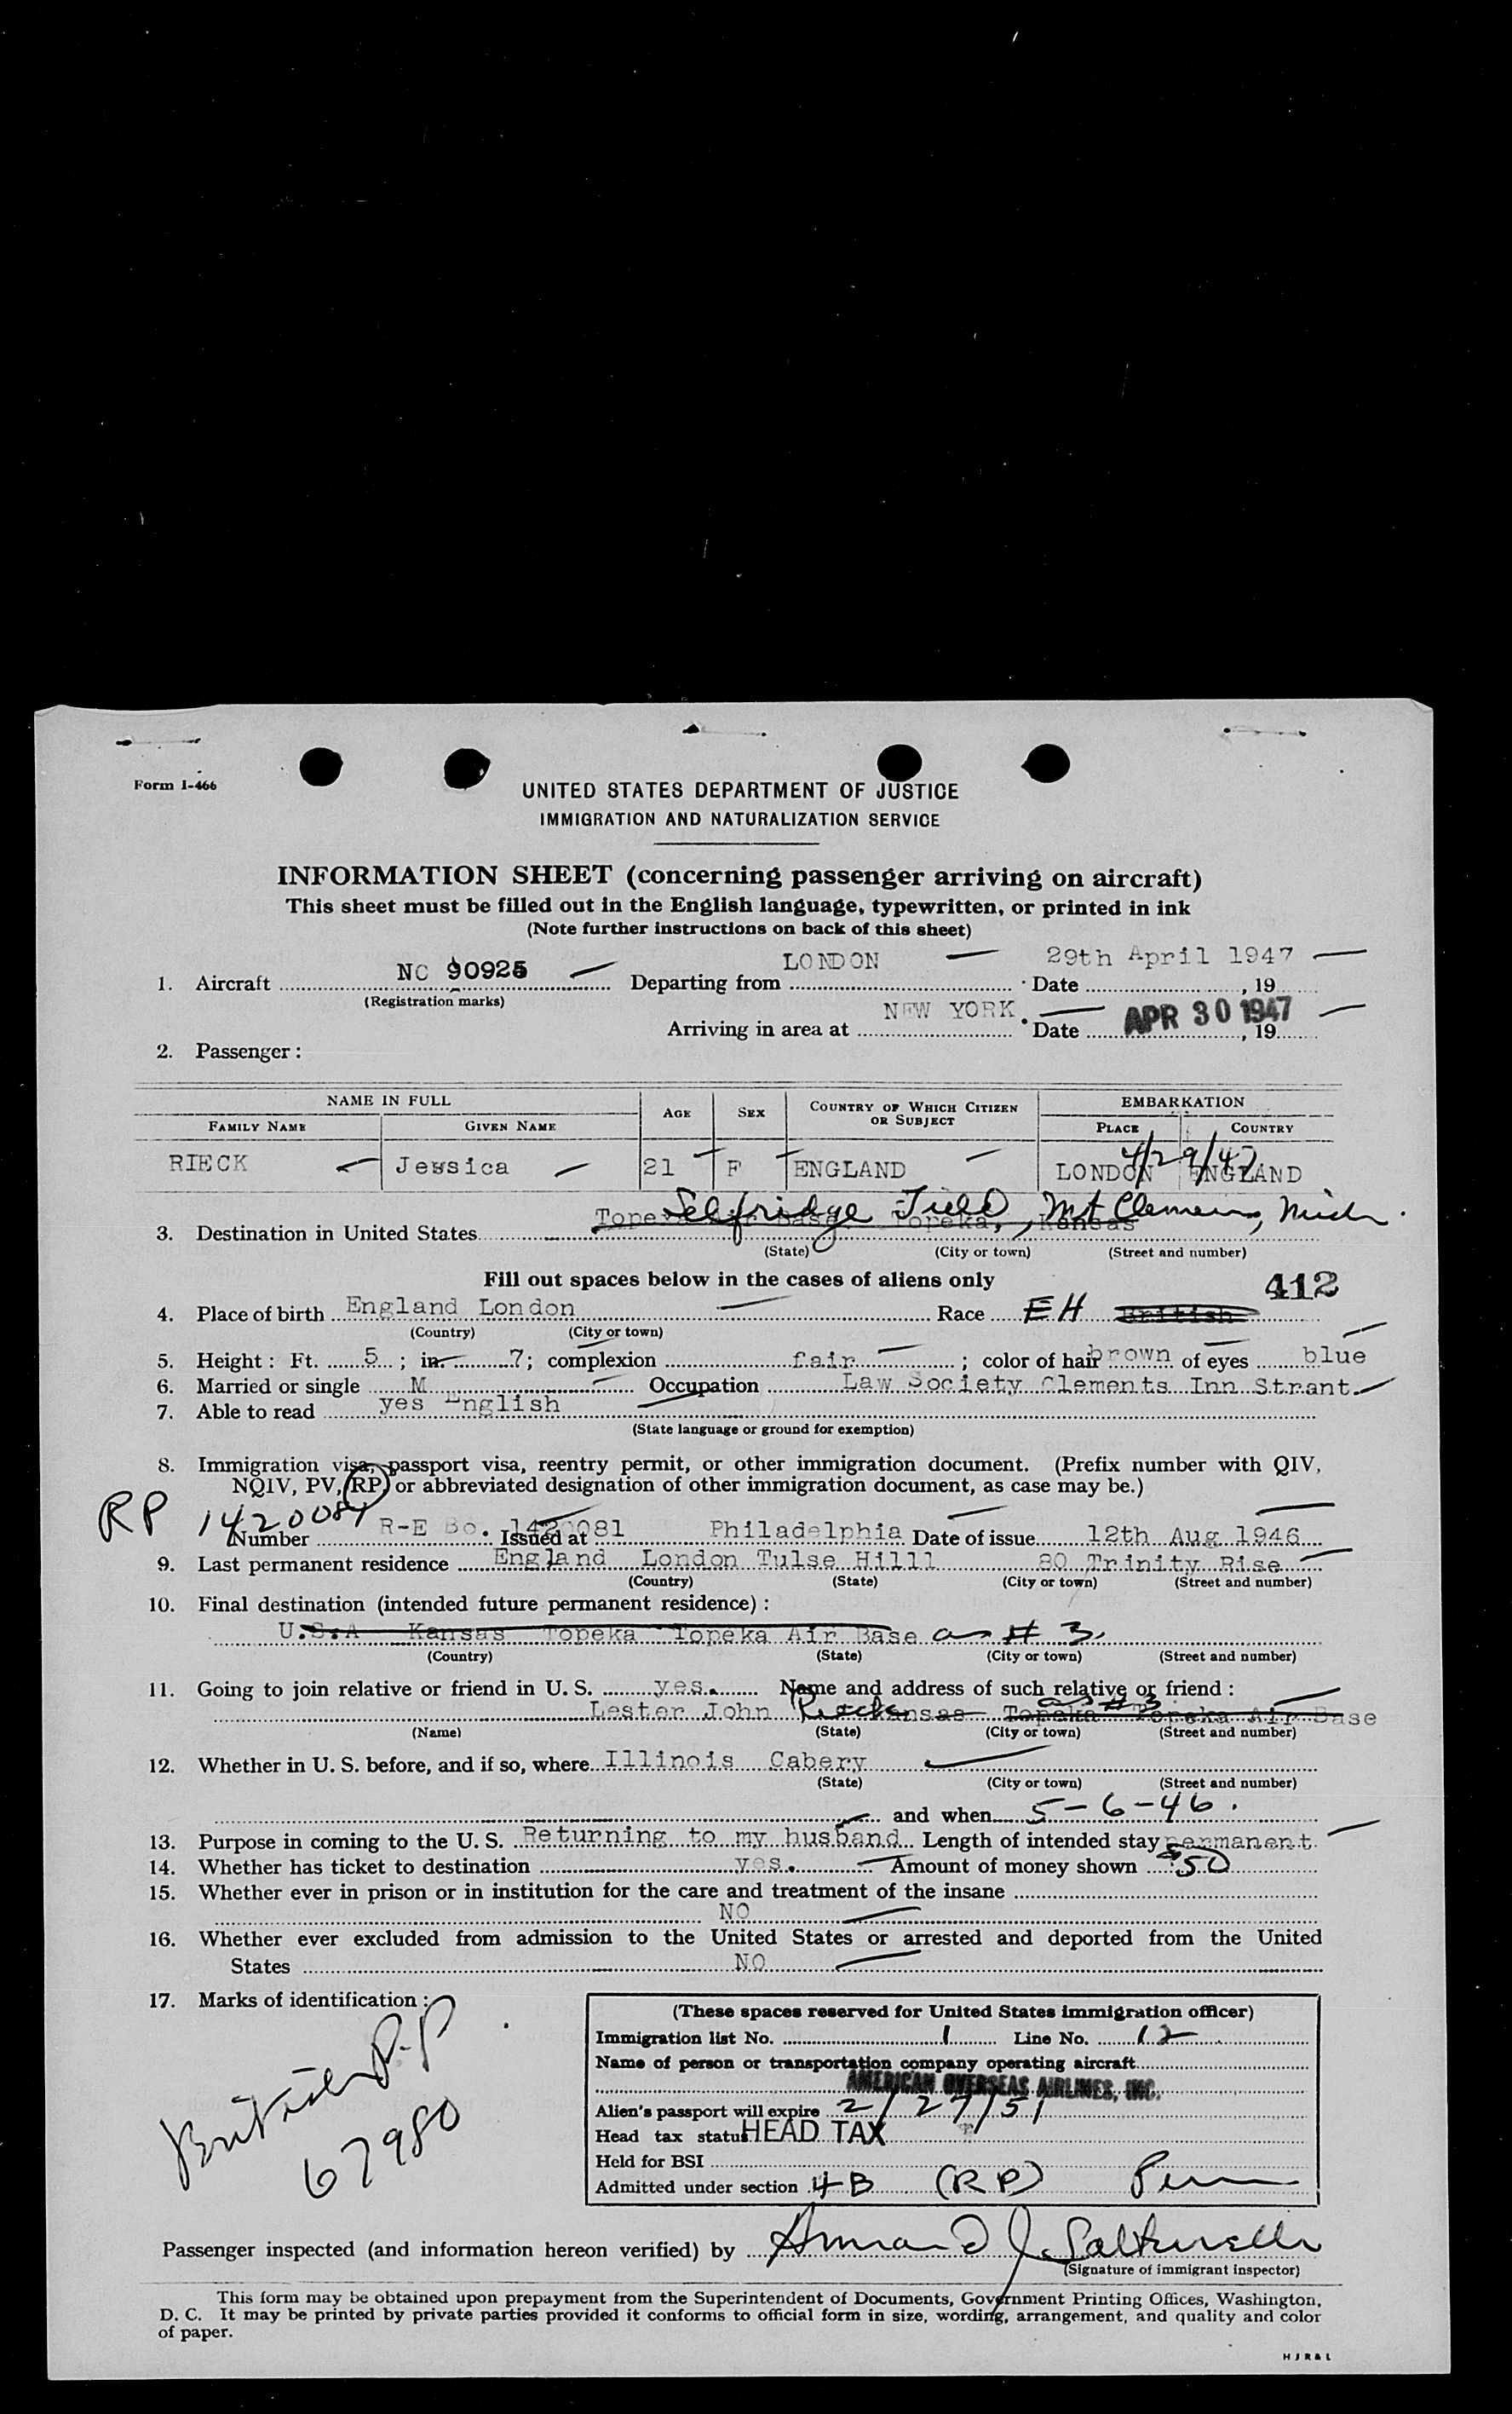 Form I-466
UNITED STATES DEPARTMENT OF JUSTICE
IMMIGRATION AND NATURALIZATION SERVICE
INFORMATION SHEET (concerning passenger arriving on aircraft)
This sheet must be filled out in the English language, typewritten, or printed in ink
(Note further instructions on back of this sheet)
1. Aircraft NC 90925 Departing from LONDON Date 29th April 1947, 19
(Registration marks)
Arriving in area at NEW YORK. Date APR 30 1947, 19
2. Passenger :
NAME IN FULL AGE SEX COUNTRY OF WHICH CITIZEN OR SUBJECT EMBARKATION
FAMILY NAME GIVEN NAME PLACE COUNTRY
4/29/47
RIECK Jessica 21 F ENGLAND LONDON ENGLAND
Selfridge Field, Mt Clemens, Mich.
3. Destination in United States Topeka Air Base Topeka, Kansas
(State) (City or town) (Street and number)
Fill out spaces below in the cases of aliens only 412
4. Place of birth England London Race EH British
(Country) (City or town)
5. Height : Ft. 5 ; in. 7; complexion fair ; color of hair brown of eyes blue
6. Married or single M Occupation Law Society Clements Inn Strant.
7. Able to read yes English
(State language or ground for exemption)
8. Immigration visa, passport visa, reentry permit, or other immigration document. (Prefix number with QIV,
NQIV, PV, RP, or abbreviated designation of other immigration document, as case may be.)
RP 1420081
Number R-E Bo. 1420081 Issued at Philadelphia Date of issue 12th Aug 1946
9. Last permanent residence England London Tulse Hilll 80 Trinity Rise
(Country) (State) (City or town) (Street and number)
10. Final destination (intended future permanent residence) :
U.S.A Kansas Topeka Topeka Air Base as # 3.
(Country) (State) (City or town) (Street and number)
11. Going to join relative or friend in U. S. yes. Name and address of such relative or friend :
Lester John Rieck Kansas Topeka Topeka Air Base as # 3
(Name) (State) (City or town) (Street and number)
12. Whether in U. S. before, and if so, where Illinois Cabery
(State) (City or town) (Street and number)
and when 5-6-46.
13. Purpose in coming to the U. S. Returning to my husband Length of intended stay permanent
14. Whether has ticket to destination yes. Amount of money shown $50
15. Whether ever in prison or in institution for the care and treatment of the insane
NO
16. Whether ever excluded from admission to the United States or arrested and deported from the United
States NO
17. Marks of identification :
British P.P
67980
(These spaces reserved for United States immigration officer)
Immigration list No. 1 Line No. 12
Name of person or transportation company operating aircraft
AMERICAN OVERSEAS AIRLINES, INC.
Alien's passport will expire 2/27/51
Head tax status HEAD TAX
Held for BSI
Admitted under section 4B (RP) Perm
Passenger inspected (and information hereon verified) by Armand J.
(Signature of immigrant inspector)
This form may be obtained upon prepayment from the Superintendent of Documents, Government Printing Offices, Washington,
D. C. It may be printed by private parties provided it conforms to official form in size, wording, arrangement, and quality and color
of paper.
HJR&L